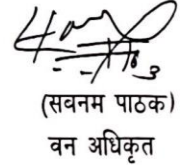 (सबनम पाठक)
वन अधिकृत